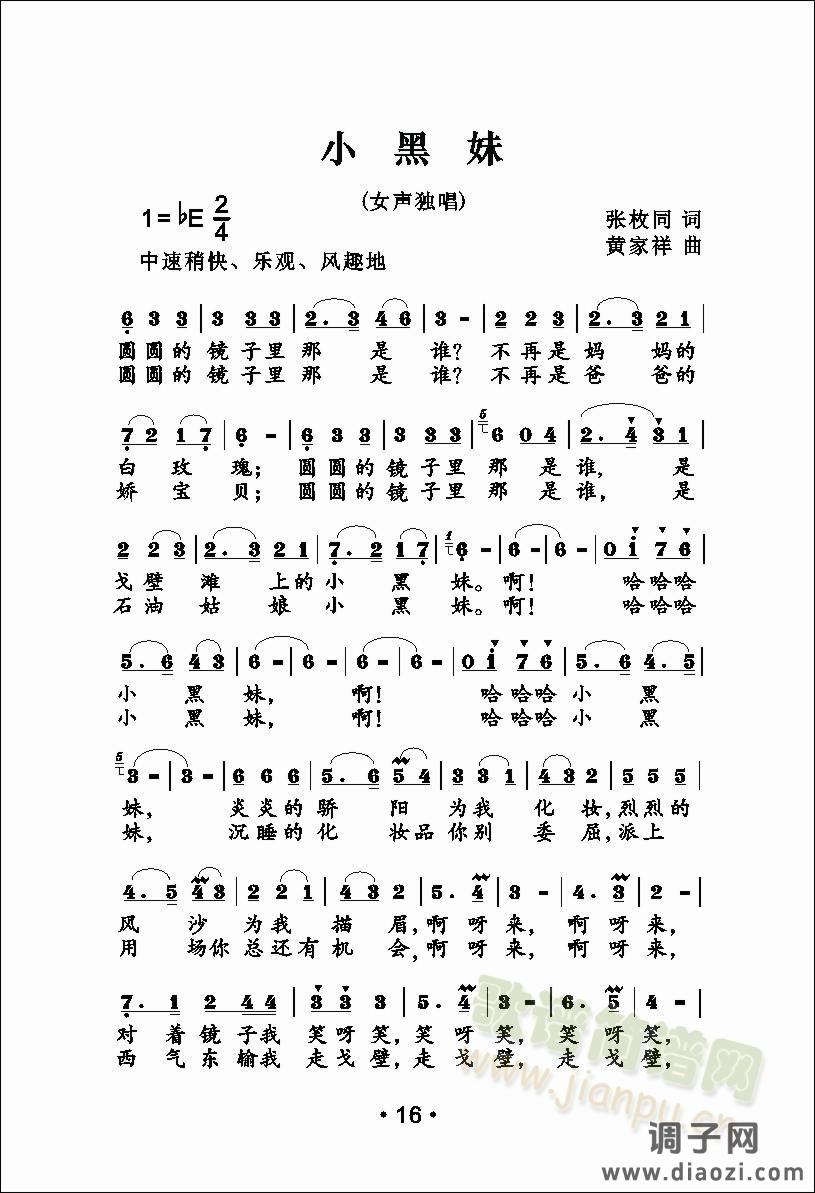 小 黑 妹
(女声独唱)
1=♭E 2/4
张枚同 词
黄家祥 曲
中速稍快、乐观、风趣地
6 3 3 | 3 3 3 | 2. 3 4 6 | 3 - | 2 2 3 | 2. 3 2 1 |
圆圆的 镜子里那 是 谁? 不再是妈 妈的
圆圆的 镜子里那 是 谁? 不再是爸 爸的
7 2 1 7 | 6 - | 6 3 3 | 3 3 3 | 6 0 4 | 2. 4 3 1 |
白 玫 瑰; 圆圆的镜子里那是谁, 是
娇 宝 贝; 圆圆的镜子里那是谁, 是
2 2 3 | 2. 3 2 1 | 7. 2 1 7 | 6 - | 6 - | 6 - | 0 1 7 6 |
戈壁 滩 上的小 黑 妹。啊! 哈哈哈
石油 姑 娘 小 黑 妹。啊! 哈哈哈
5. 6 4 3 | 6 - | 6 - | 6 - | 6 - | 0 1 7 6 | 5. 6 4. 5 |
小 黑 妹, 啊! 哈哈哈小 黑
小 黑 妹, 啊! 哈哈哈小 黑
3 - | 3 - | 6 6 6 | 5. 6 5 4 | 3 3 1 | 4 3 2 | 5 5 5 |
妹, 炎炎的骄 阳 为我 化 妆,烈烈的
妹, 沉睡的化 妆品你别 委 屈,派上
4. 5 4 3 | 2 2 1 | 4 3 2 | 5. 4 | 3 - | 4. 3 | 2 - |
风 沙 为我 描 眉,啊 呀 来, 啊 呀来,
用 场你 总还有 机 会,啊 呀 来, 啊 呀来,
7. 1 2 4 4 | 3 3 3 | 5. 4 | 3 - | 6. 5 | 4 - |
对 着 镜 子我 笑 呀 笑,笑 呀 笑, 笑 呀 笑,
西 气 东 输我 走 戈 壁,走 戈 壁, 走 戈 壁,
歌谱简谱网
www.jianpu.cn
· 16 ·
调子网
www.diaozi.com